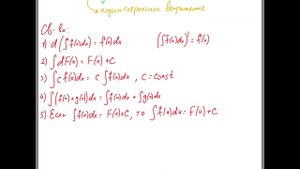 подинтегральное выражение
Св-ва:
1) d(∫f(x)dx) = f(x)dx (∫f(x)dx)' = f(x)
2) ∫dF(x) = F(x) + C
3) ∫cf(x)dx = c∫f(x)dx, c = const
4) ∫(f(x)+g(x))dx = ∫f(x)dx + ∫g(x)dx
5) Если ∫f(x)dx = F(x)+C, то ∫f(u)du = F(u) + C